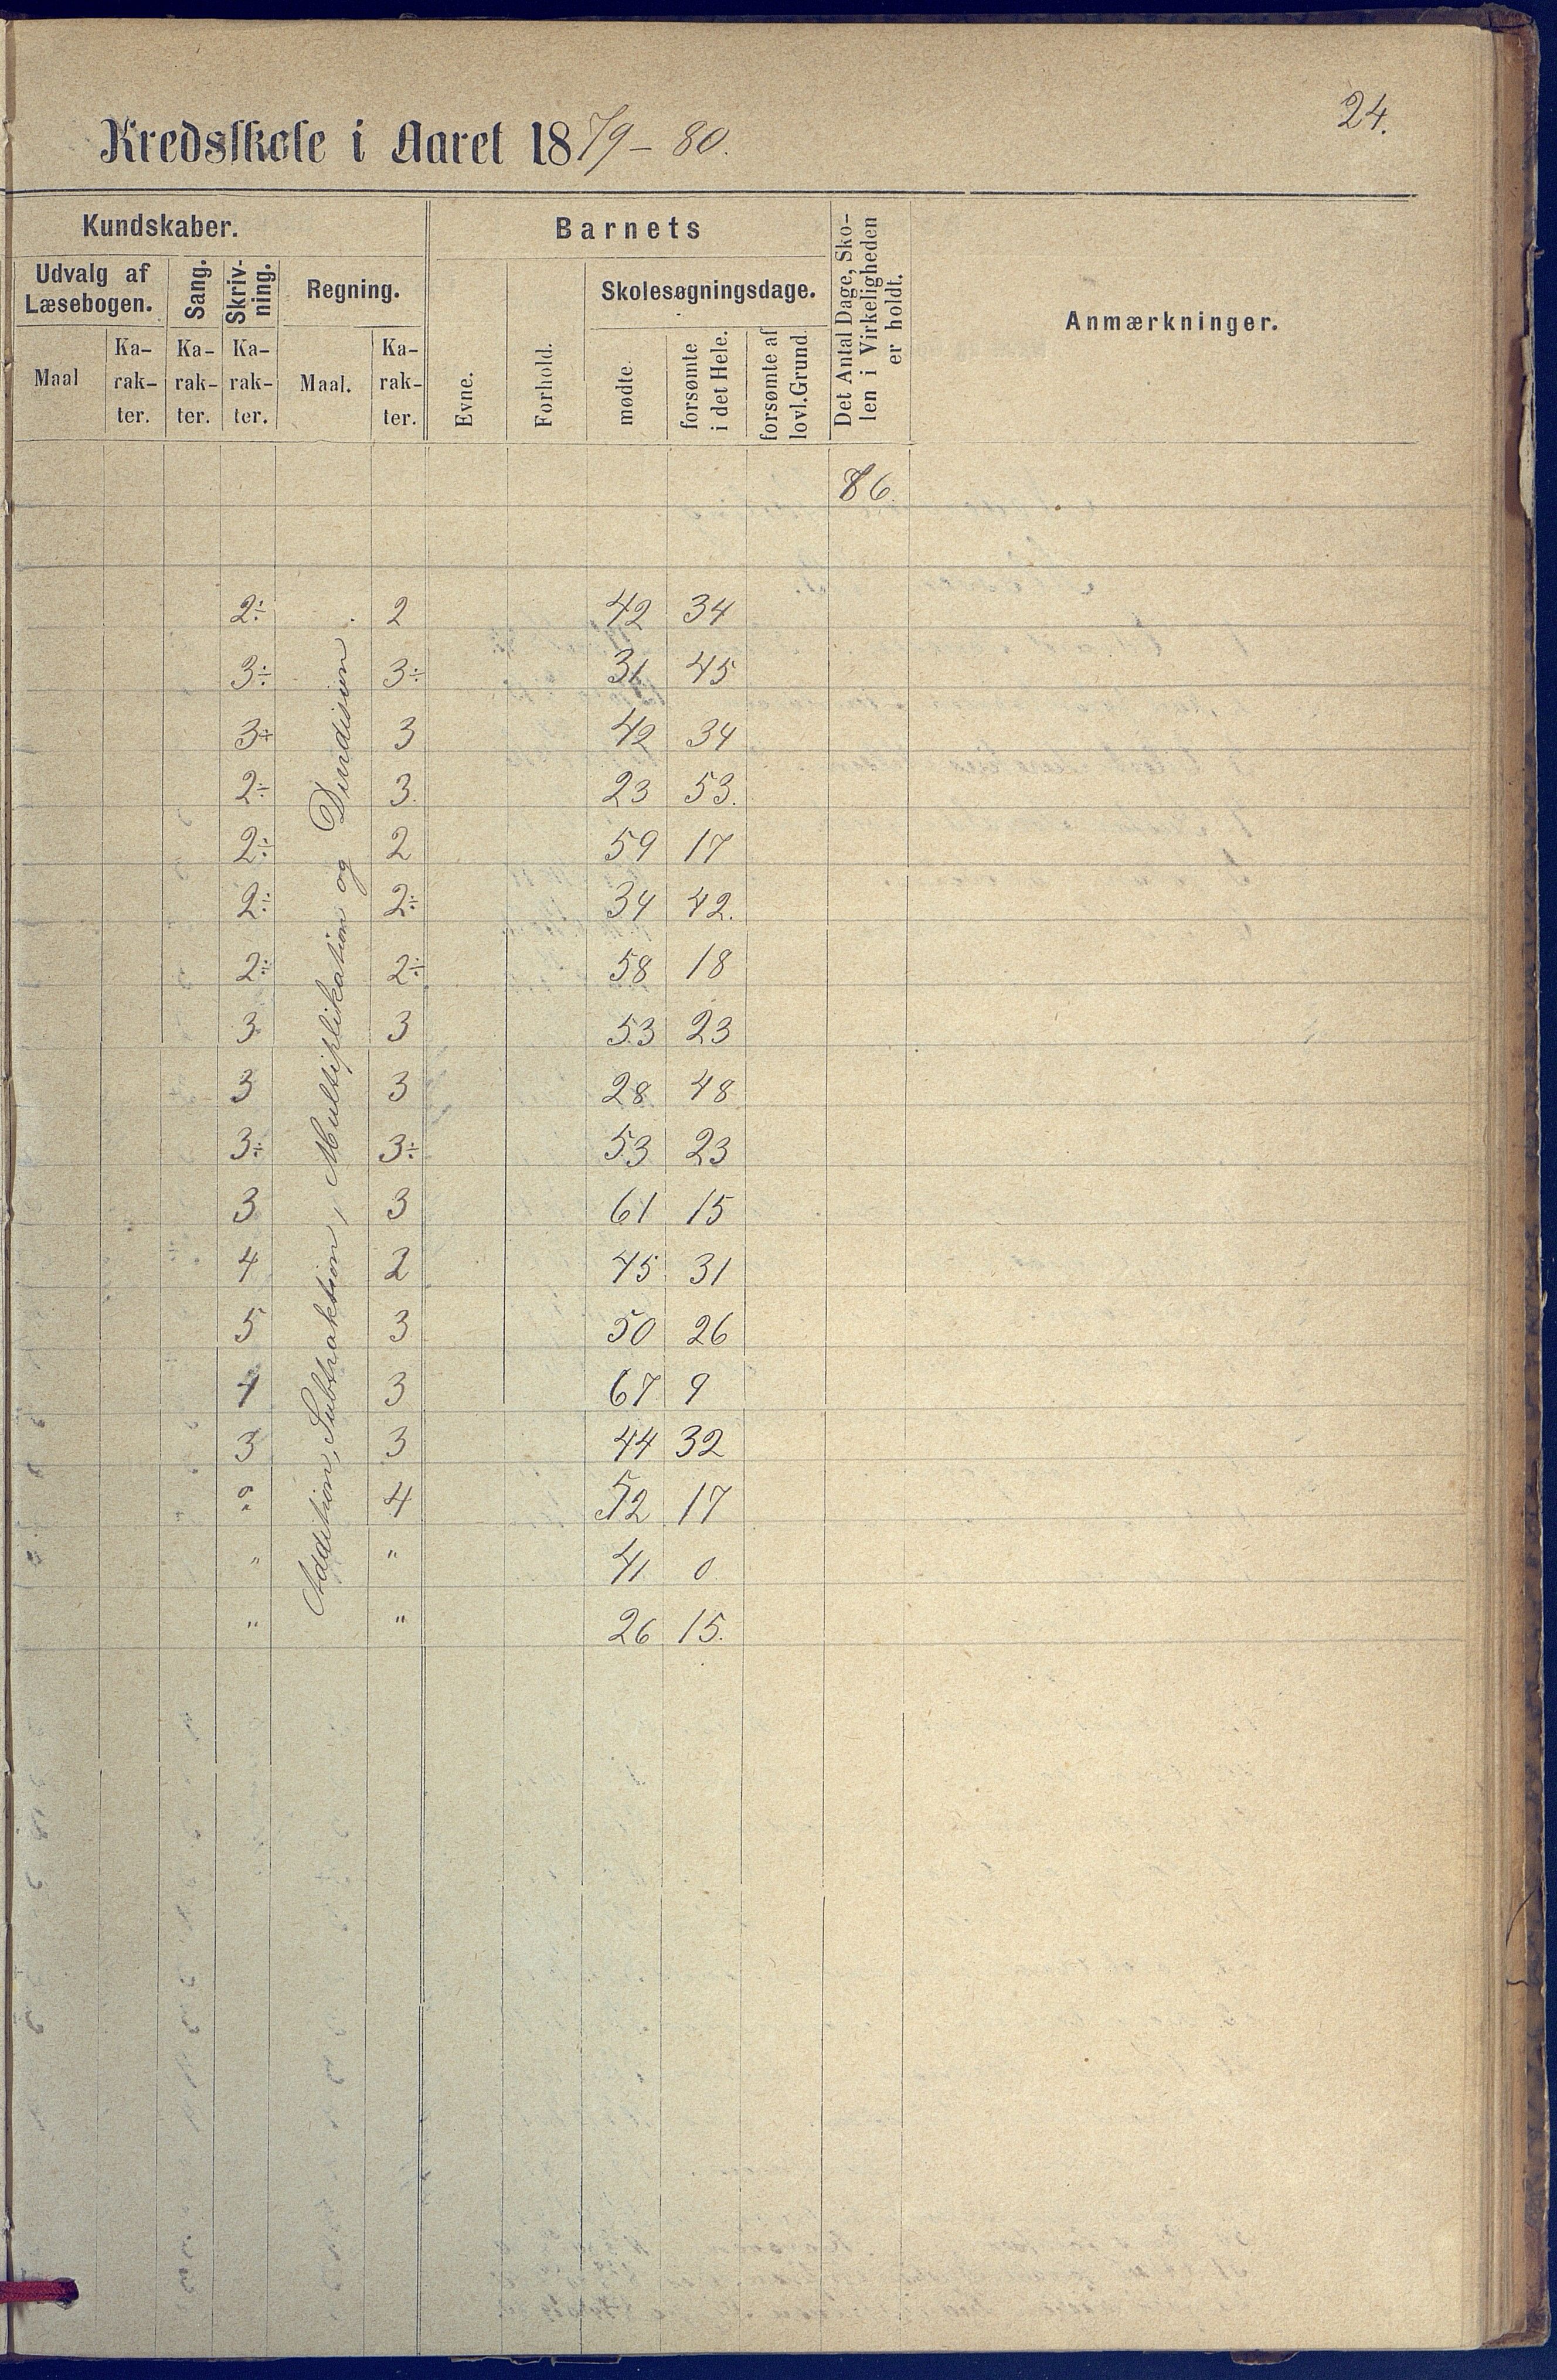 24.
Kredsskole i Aaret 1879-80.
Kundskaber.
Barnets
Det Antal Dage, Sko-
len i Virkeligheden
er holdt.
Anmærkninger.
Udvalg af
Læsebogen.
Sang.
Skriv-
ning.
Regning.
Evne.
Forhold.
Skolesøgningsdage.
Maal
Ka-
rak-
ter.
Ka-
rak-
ter.
Ka-
rak-
ter.
Maal.
Ka-
rak-
ter.
mødte.
forsømte
i det Hele.
forsømte af
lovl. Grund
76.
Addition, Subtraktion, Multiplikation og Dividision.
2÷ 2 42 34
3÷ 3÷ 31 45
3÷ 3 42 34
2÷ 3. 23 53.
2÷ 2 59 17
2÷ 2÷ 34 42.
2÷ 2÷ 58 18
3 3 53 23
3 3 28 48
3÷ 3÷ 53 23
3 3 61 15
4 2 45 31
5 3 50 26
4 3 67 9
3 3 44 32
4 52 17
" " 41 0
" " 26 15.